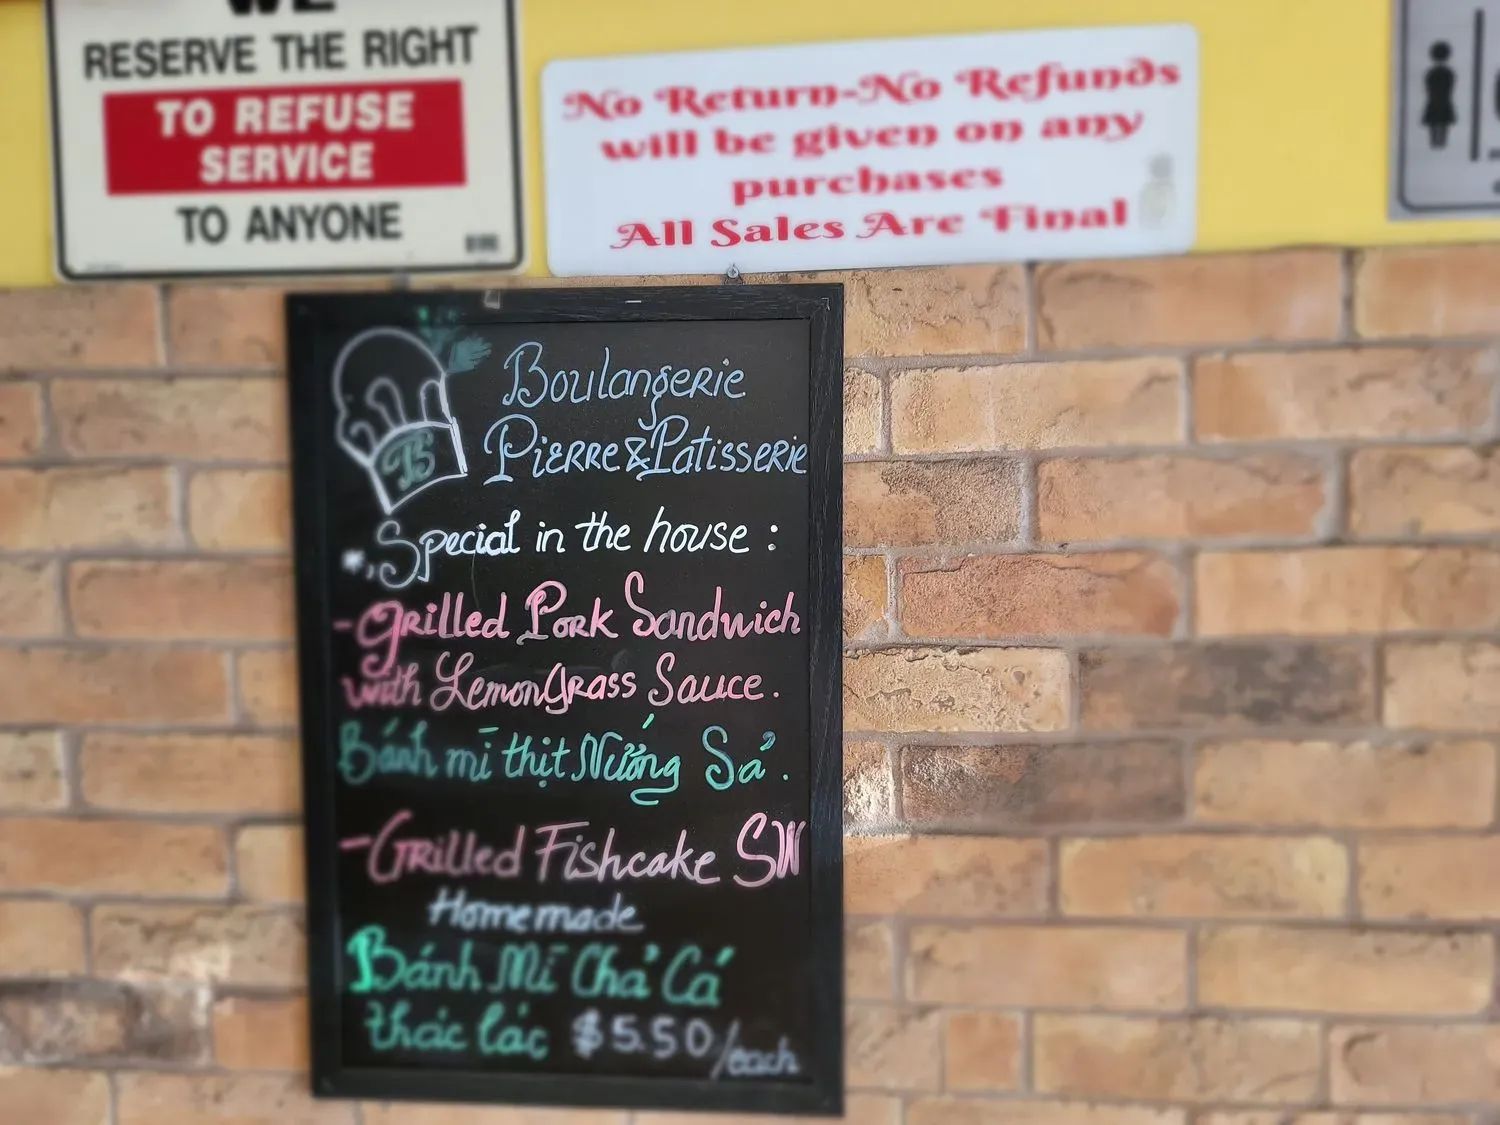 WE
RESERVE THE RIGHT
TO REFUSE
SERVICE
TO ANYONE
No Return-No Refunds
will be given on any
purchases
All Sales Are Final
B
Boulangerie
Pierre & Patisserie
*. Special in the house :
- Grilled Pork Sandwich
with LemonGrass Sauce.
Bánh mì thịt Nướng Sả.
- Grilled Fishcake SW
Homemade
Bánh Mì Chả Cá
thác lác $5.50/each